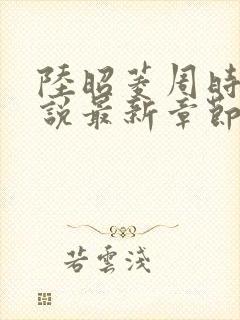 陸昭菱周時
說最新章節
若雲淺